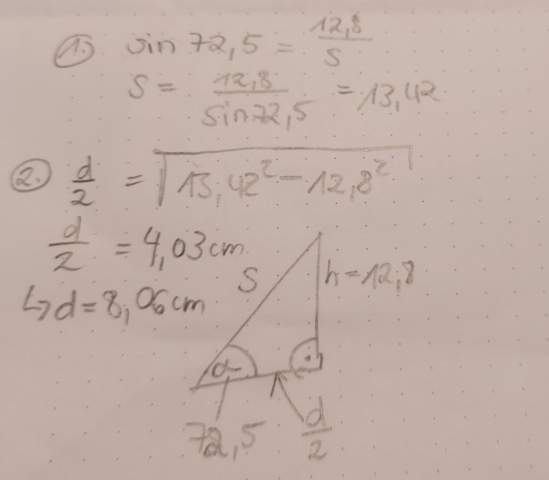 1. sin 72,5 = 12,8/S
S = 12,8/sin 72,5 = 13,42
2. d/2 = √(13,42² - 12,8²)
d/2 = 4,03 cm
↳ d = 8,06 cm
S
h = 12,8
α
72,5
d/2